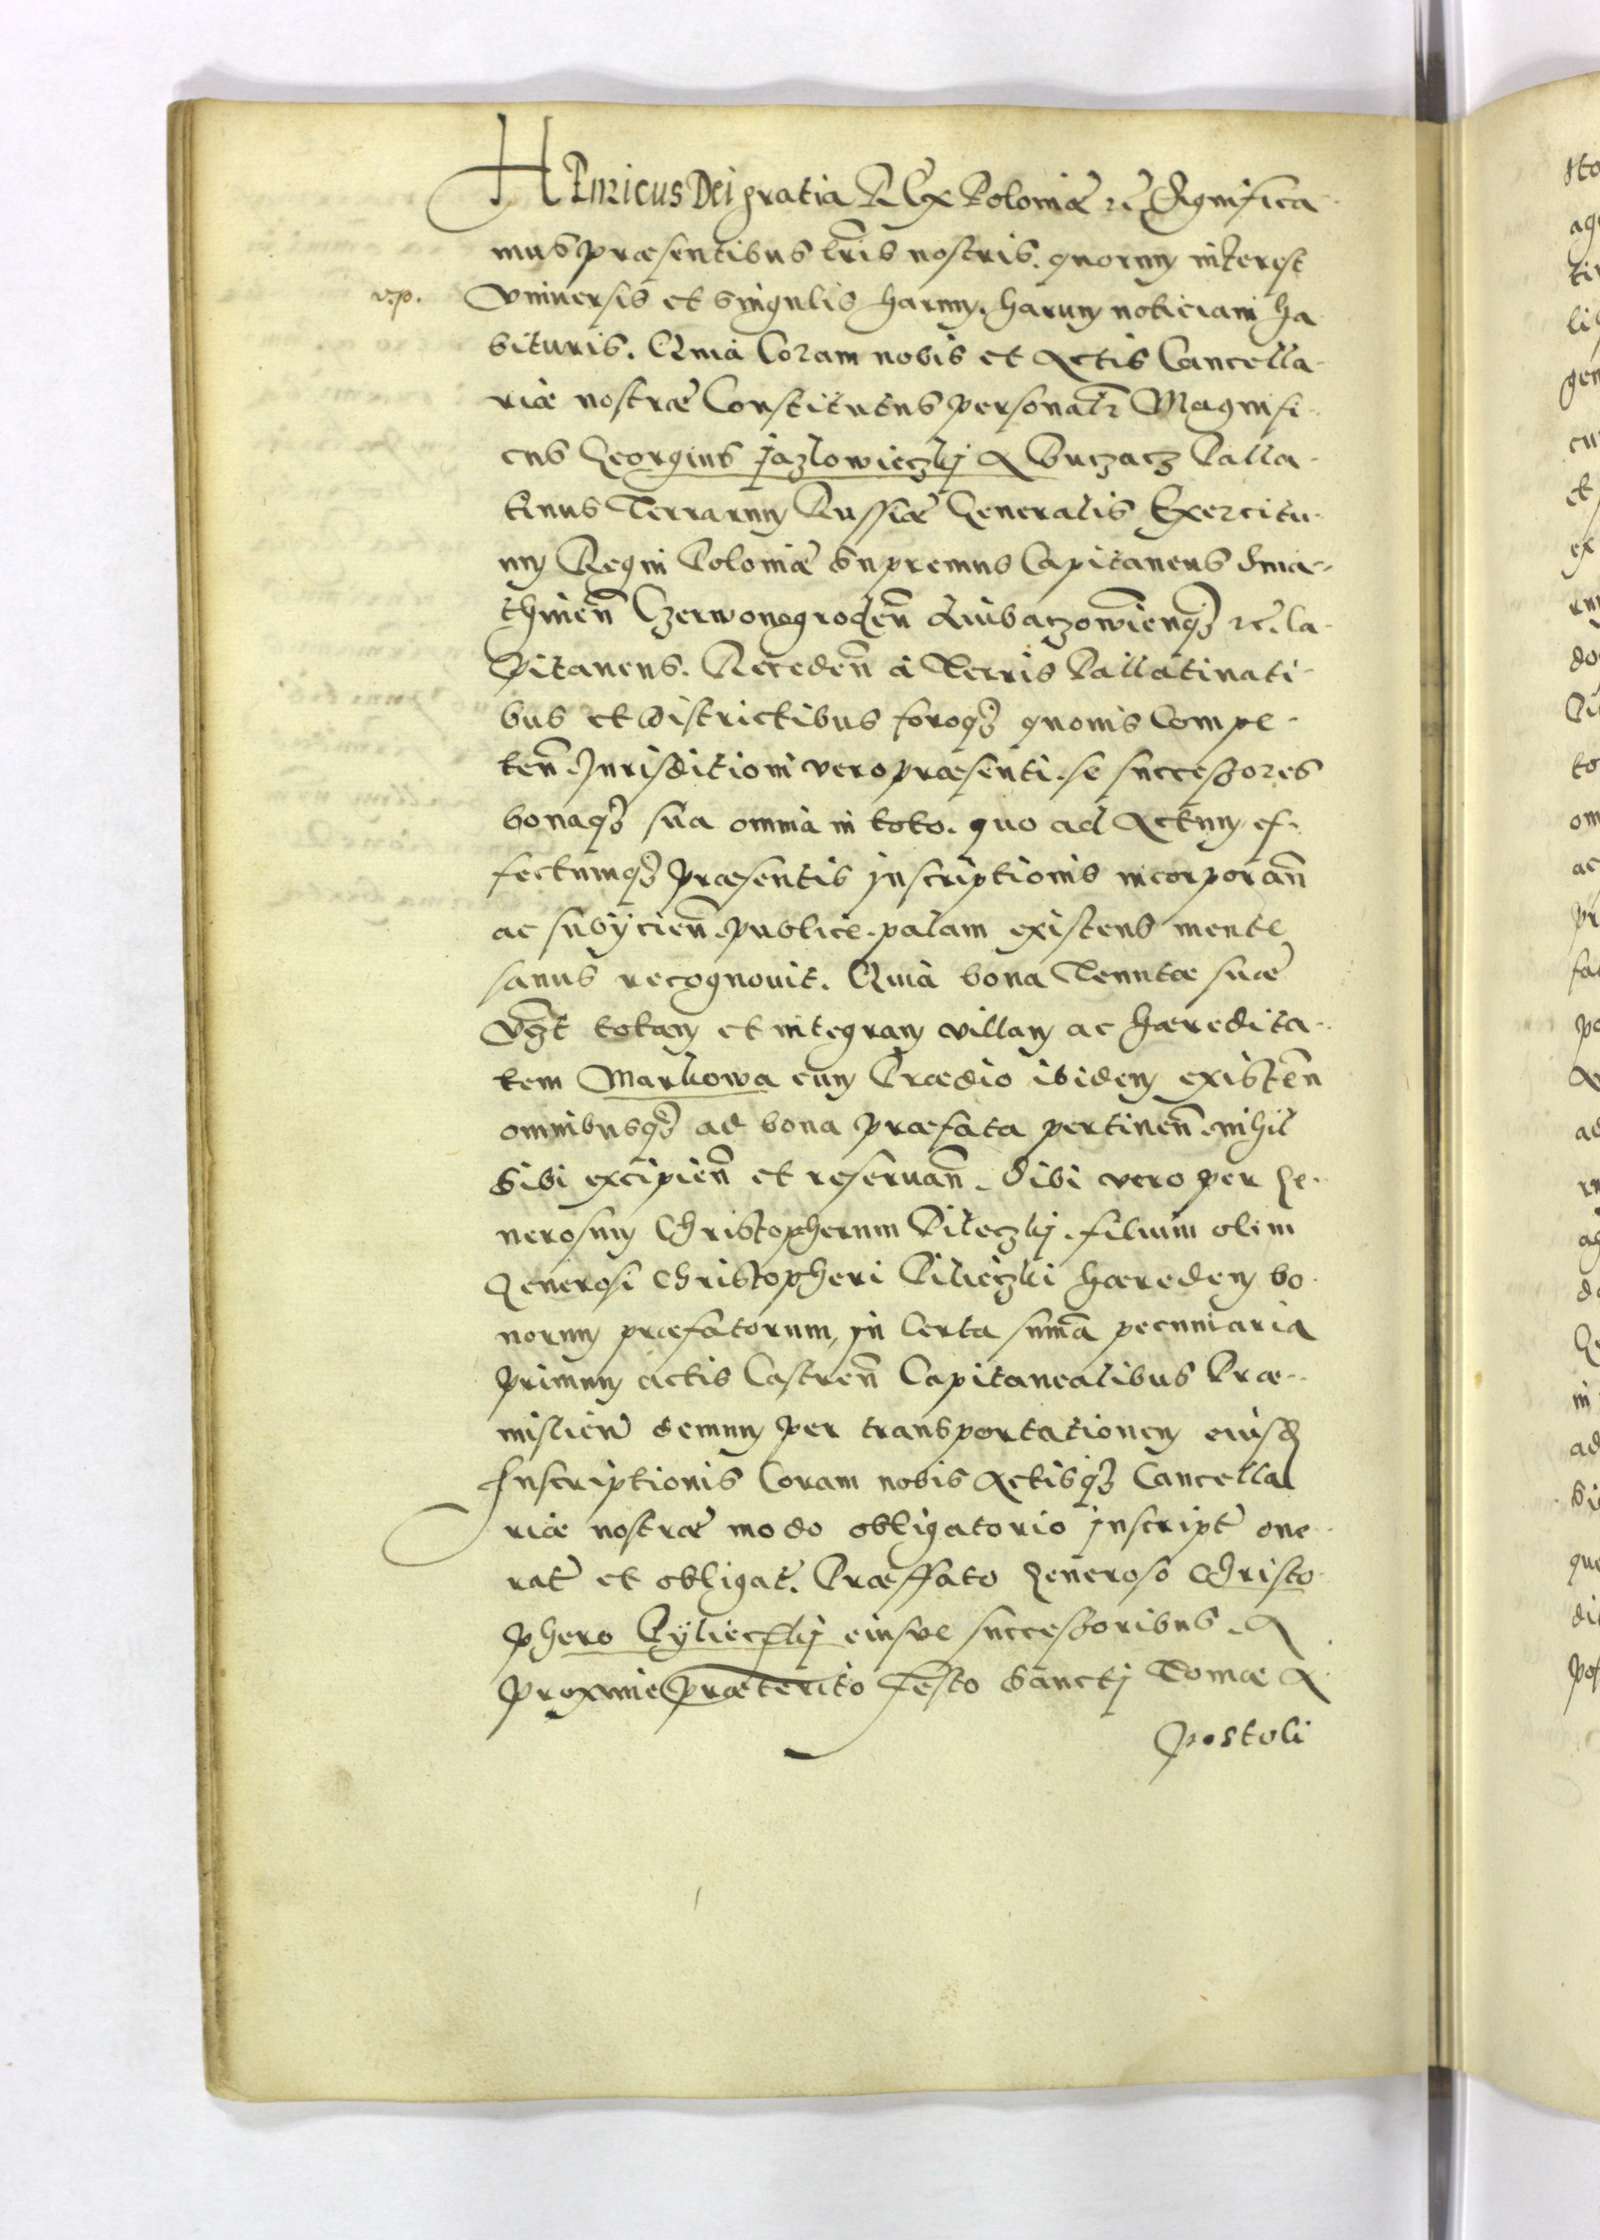 HEnricus Dei gratia REx Poloniæ etc Significa-
mus præsentibus lr̃is nostris. quorum interest
v.p.
Vniuersis et singulis harum, harum noticiam ha
bituris. Quia Coram nobis et Actis Cancella-
riæ nostræ Constitutus personalr̃ Magnifi-
cus Georgius Jazlowieczkj A Buczacz Palla-
tinus Terrarum Russiæ Generalis Exercitu-
um Regni Poloniæ Supremus Capitaneus Snia-
thinen̄ Czerwonogroden̄ Liubaczowien̄qȝ etc. Ca-
pitaneus. Receden̄ à Terris Pallatinati-
bus et Districtibus foroqȝ quouis Compe-
ten̄. Jurisditioni vero præsenti. se successores
bonaqȝ sua omnia in toto. quo ad Actum ef-
fectumqȝ præsentis jnscriptionis incorporan̄
ac subÿcien̄. publice. palam existens mente
sanus recognouit. Quia bona Tenutæ suæ
Vȝt totam et integram villam ac hæredita-
tem Markowa cum Prædio ibidem existen̄
omnibusqȝ ad bona præfata pertinen̄. nihil
sibi excipien̄ et reseruan̄. Sibi vero per Ge-
nerosum Christopherum Pileczkj. filium olim
Generosi Christopheri Pilieczki hæredem bo-
norum præfatorum, in Certa sum̄a pecuniaria
primum actis Castren̄ Capitanealibus Præ-
mislien̄ demum per transportationem eiusd
Inscriptionis Coram nobis Actisqȝ Cancella
riæ nostræ modo obligatorio jnscript̃ one-
rat̃ et obligat̃. Præffato Generoso Christo-
phero Pÿlieczkij eiusve successoribus. A
proxime præterito Festo Sanctj Tomæ A
postoli